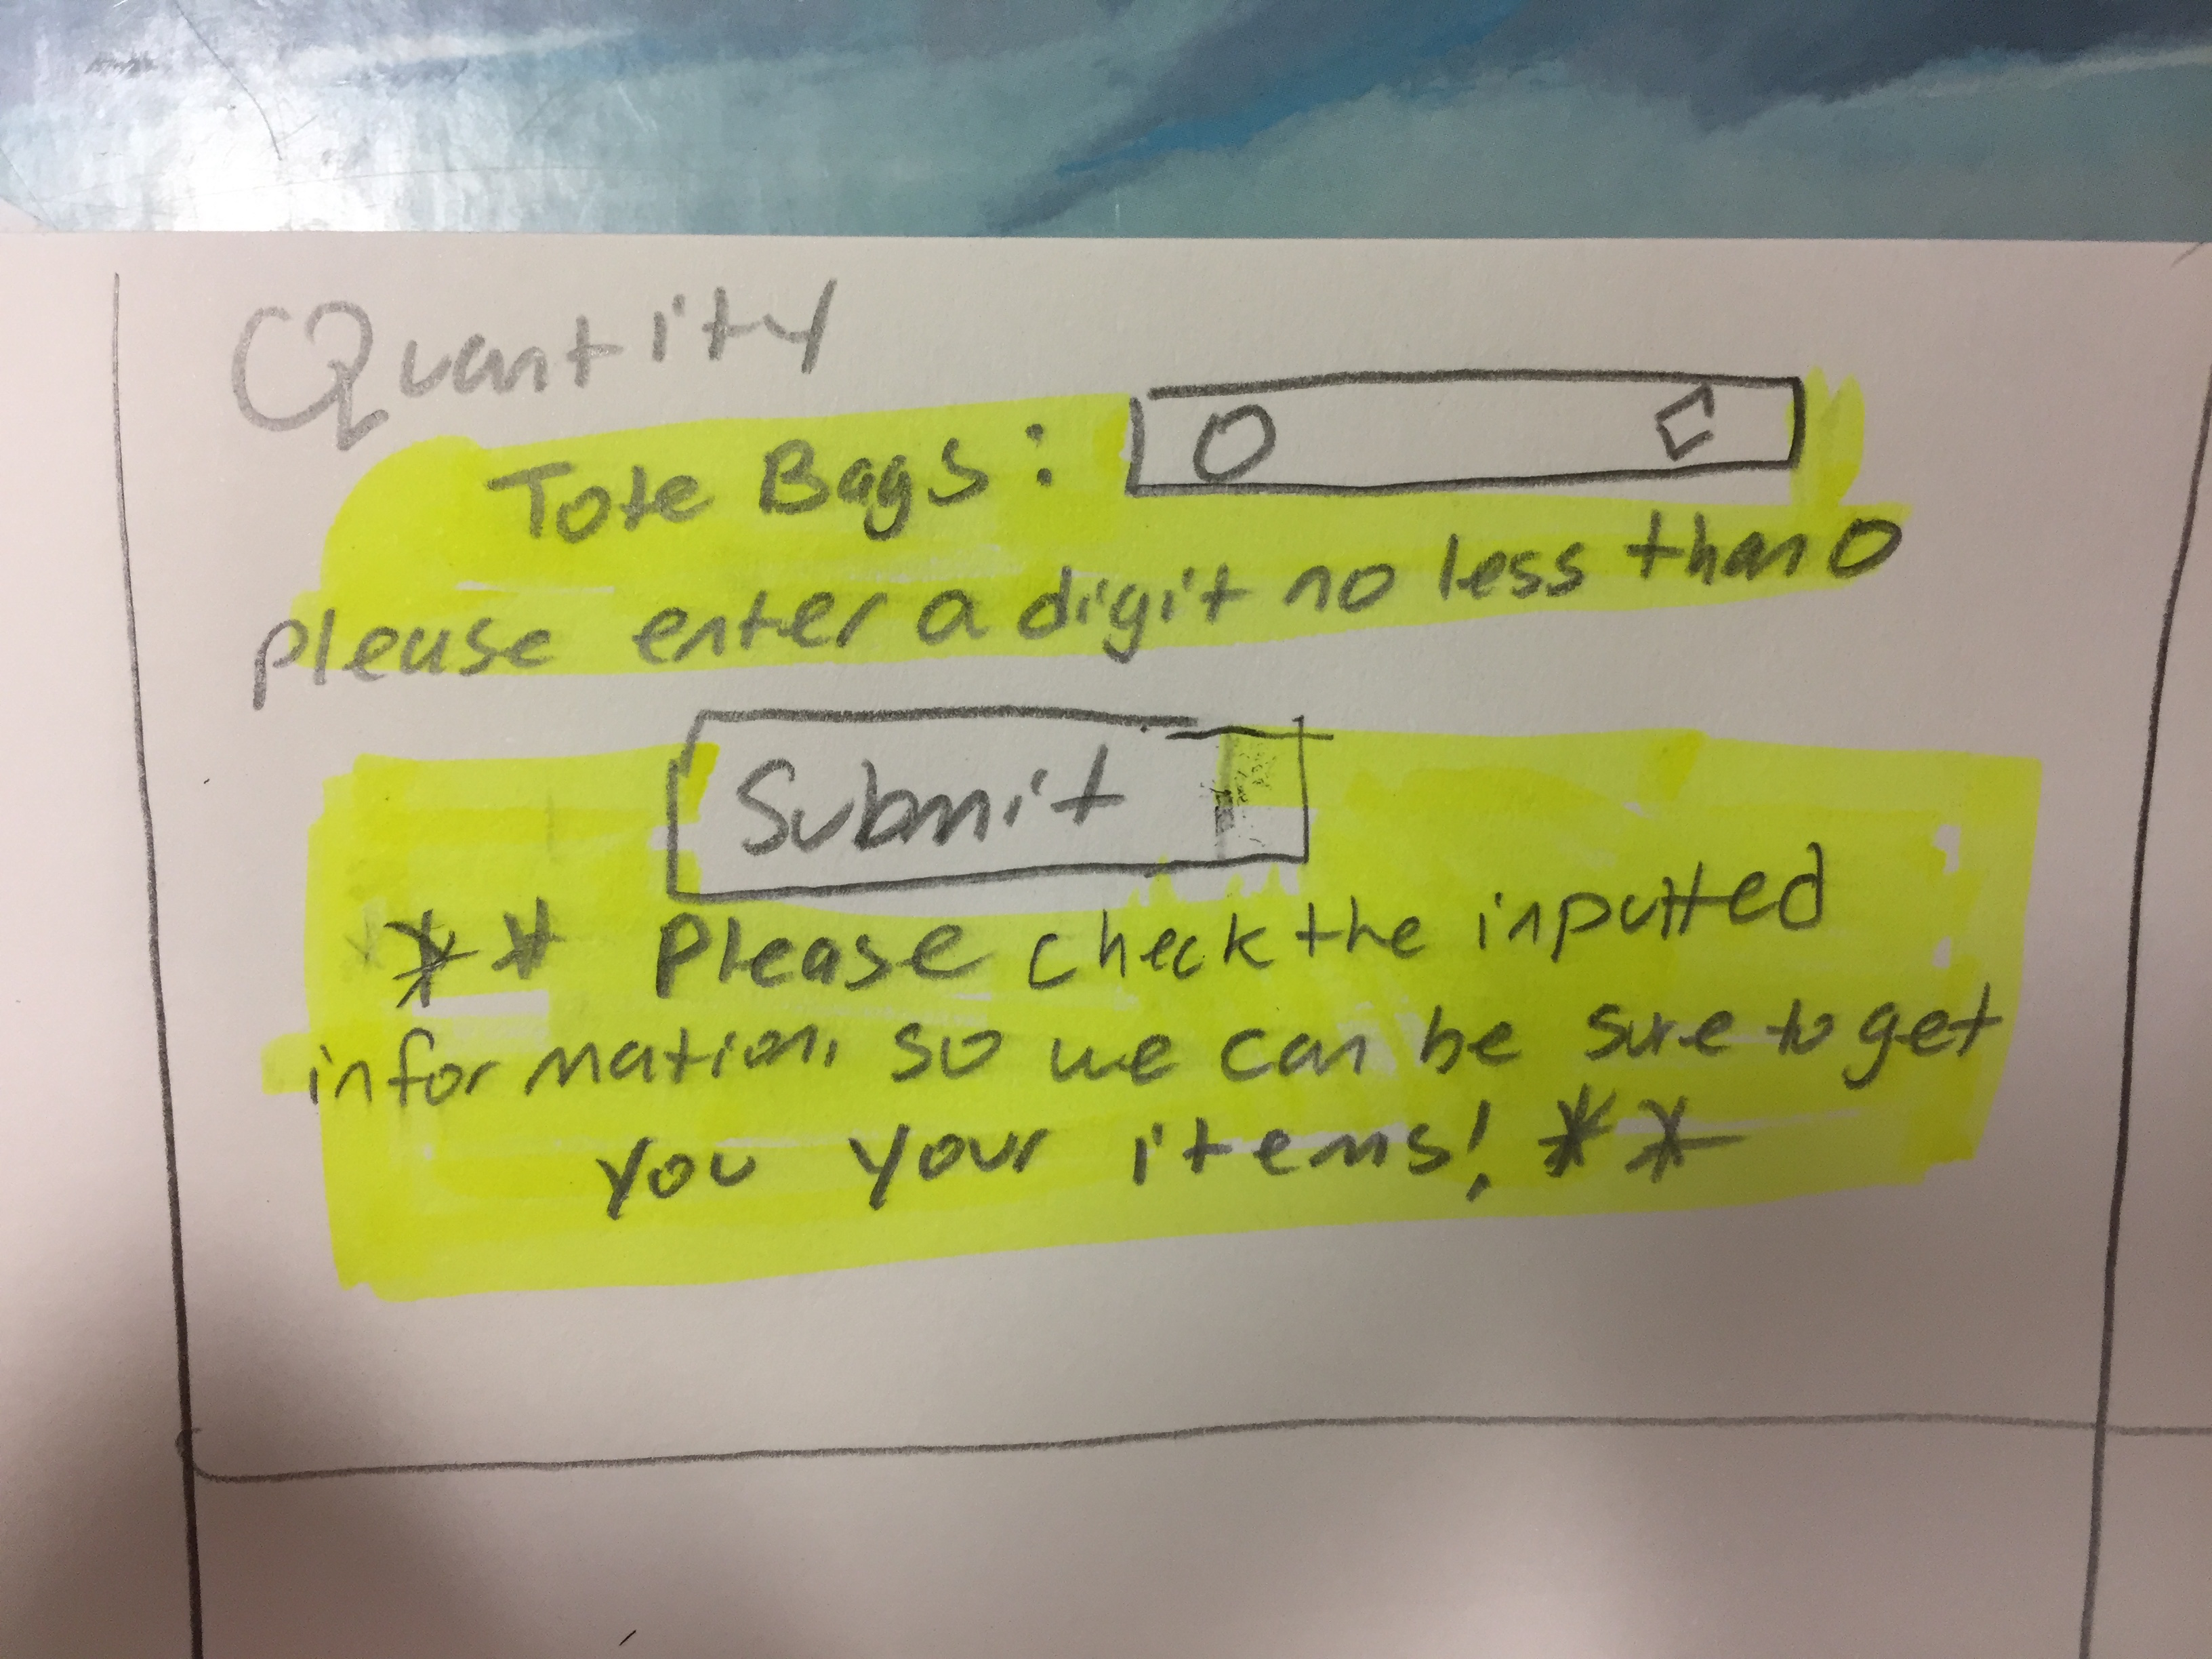 Quantity
Tote Bags: 0
please enter a digit no less than 0
Submit
** Please check the inputted
information, so we can be sure to get
you your items! **